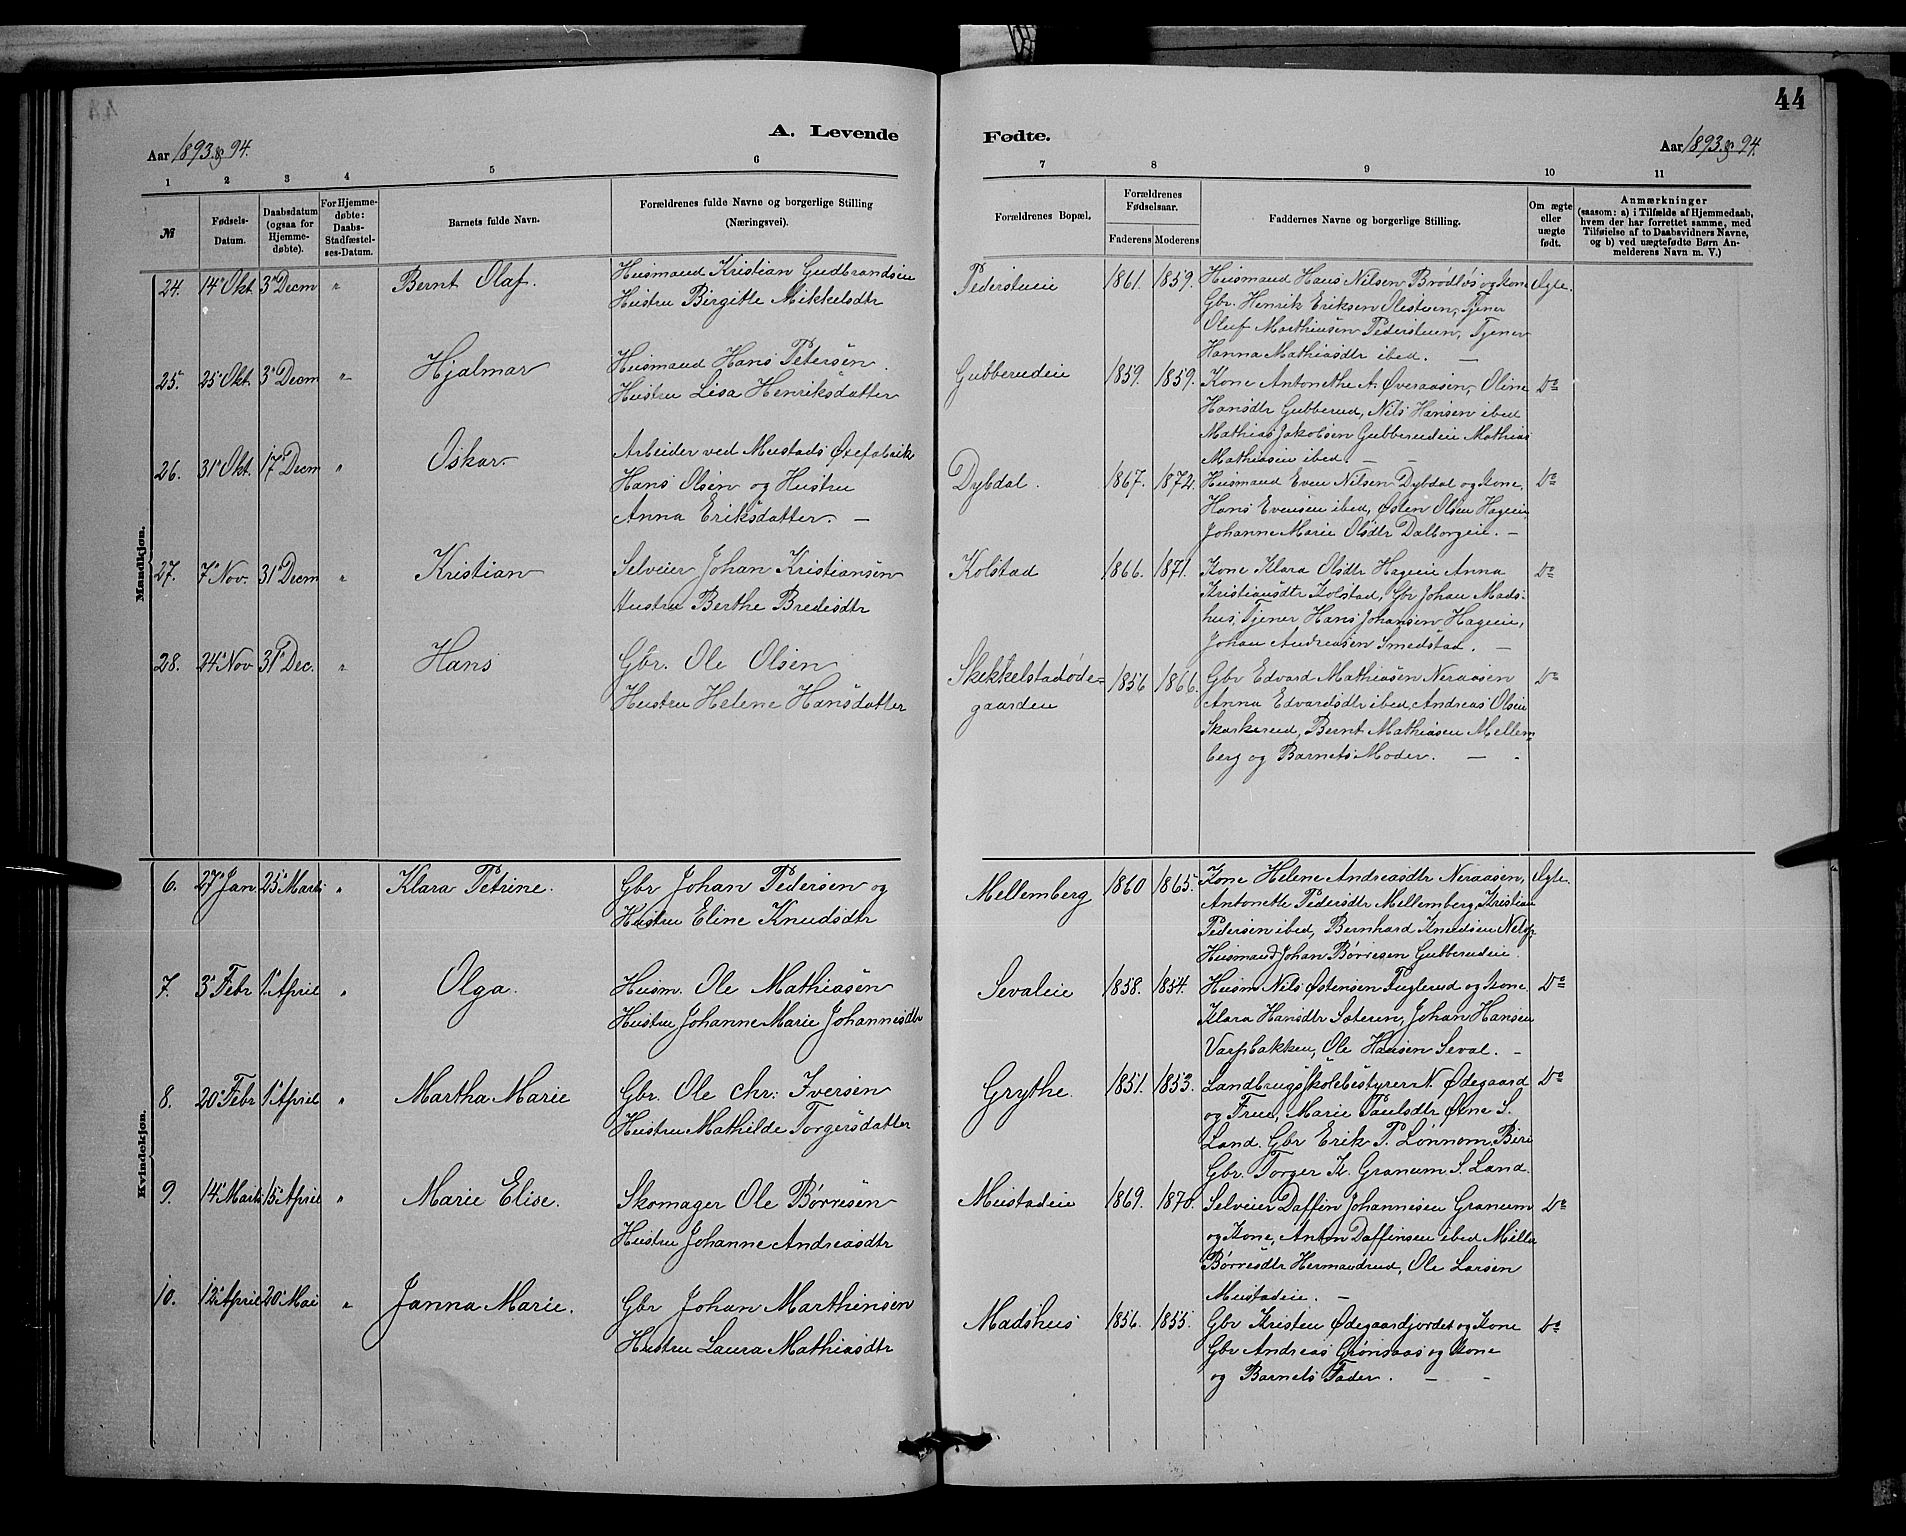 44
A. Levende Fødte.
Aar 1893 & 94.
Aar 1893 & 94.
1 2 3 4 5 6 7 8 9 10 11
№
Fødsels-Datum.
Daabsdatum (ogsaa for Hjemme-døbte).
For Hjemme-døbte: Daabs-Stadfæstel-ses-Datum.
Barnets fulde Navn.
Forældrenes fulde Navne og borgerlige Stilling (Næringsvei).
Forældrenes Bopæl.
Forældrenes Fødselsaar.
Faderens Moderens
Faddernes Navne og borgerlige Stilling.
Om ægte eller uægte født.
Anmærkninger
(saasom: a) i Tilfælde af Hjemmedaab, hvem der har forrettet samme, med Tilføielse af to Daabsvidners Navne, og b) ved uægtefødte Børn An-melderens Navn m. V.)
Mandkjøn.
24. 14' Okt. 3' Decm " Bernt Olaf. Husmand Kristian Gudbrandsen
Hustru Birgitte Mikkelsdtr
Pedersteueie 1861. 1859. Husmand Hans Nilsen Brødløs og Kone Ægte.
Gbr. Henrik Eriksen Olestuen, Tjener
Oluf Mathiasen Pedersteuen, Tjener
Hanna Mathiasdtr ibed. —
25. 25' Okt. 3' Decm " Hjalmar Husmand Hans Petersen.
Hustru Lisa Henriksdatter
Gubberudeie 1859. 1859. Kone Antonethe A. Øveraasen, Oline Do
Hansdtr Gubberud, Nils Hansen ibed
Mathias Jakobsen Gubberudeie Mathias
Mathiasen ibed. — —
26. 31' Okt. 17' Decm " Oskar. Arbeider ved Mustads Øxefabrik
Hans Olsen og Hustru
Anna Eriksdatter. —
Dybdal. 1867. 1872. Husmand Even Nilsen Dybdal og Kone, Do
Hans Evensen ibed, Østen Olsen Hageie,
Johanne Marie Olsdtr Dalborgeie. —
27. 7' Nov. 31' Decm " Kristian Selveier Johan Kristiansen
Hustru Berthe Bredesdtr
Kolstad 1866. 1871. Kone Klara Olsdtr Hageie Anna Do
Kristiansdtr Kolstad, Gbr Johan Mads-
hus, Tjener Hans Johansen Hageie,
Johan Andreasen Smedstad. —
28. 24' Nov 31' Dec. " Hans Gbr. Ole Olsen
Hustru Helene Hansdatter
Skikkelstadøde-
gaarden 1856 1866. Gbr Edvard Mathiasen Neraasen Do
Anna Edvardsdtr ibed, Andreas Olsen
Skarkerud, Bernt Mathiasen Mellem-
berg og Barnets Moder. —
Kvindekjøn.
6. 27' Jan 25' Marts " Klara Petrine. Gbr Johan Pedersen og
Hustru Eline Knudsdtr
Mellemberg 1860 1865. Kone Helene Andreasdtr Neraasen, Ægte.
Antonette Pedersdtr Mellemberg, Kristian
Pedersen ibed, Bernhard Knudsen
Husmand Johan Børresen Gubberudeie.
7. 3' Febr 1' April " Olga. Husm. Ole Mathiasen
Hustru Johanne Marie Johannesdtr
Sevaleie 1858. 1854. Husm Nils Østensen Fuglerud og Kone. Do
Klara Hansdtr Sæteren, Johan Hansen
Varpbakken, Ole Hansen Seval. —
8. 20' Febr 1' April " Martha Marie Gbr. Ole Chr: Iversen
Hustru Mathilde Torgersdatter
Grythe. 1851. 1853. Landbrugsskolebestyrer N. Ødegaard Do
og Frue, Marie Paulsdtr Øxne S.
Land, Gbr Erik P. Lønnom, Biri
Gbr. Torger K. Granum S. Land.
9. 14' Marts 15' April " Marie Elise. Skomager Ole Børresen
Hustru Johanne Andreasdtr
Mustadeie 1869. 1870. Selveier Daffin Johannesen Granum Do
og Kone, Anton Daffinsen ibed Milla
Børresdtr Hermandrud, Ole Larsen
Mustadeie. —
10. 12' April 20' Mai " Janna Marie. Gbr Johan Marthinsen
Hustru Laura Mathiasdtr
Madshus 1856. 1855. Gbr Kristen Ødegaardjordet og Kone Do
Gbr Andreas Grønaas og Kone
og Barnets Fader. — —